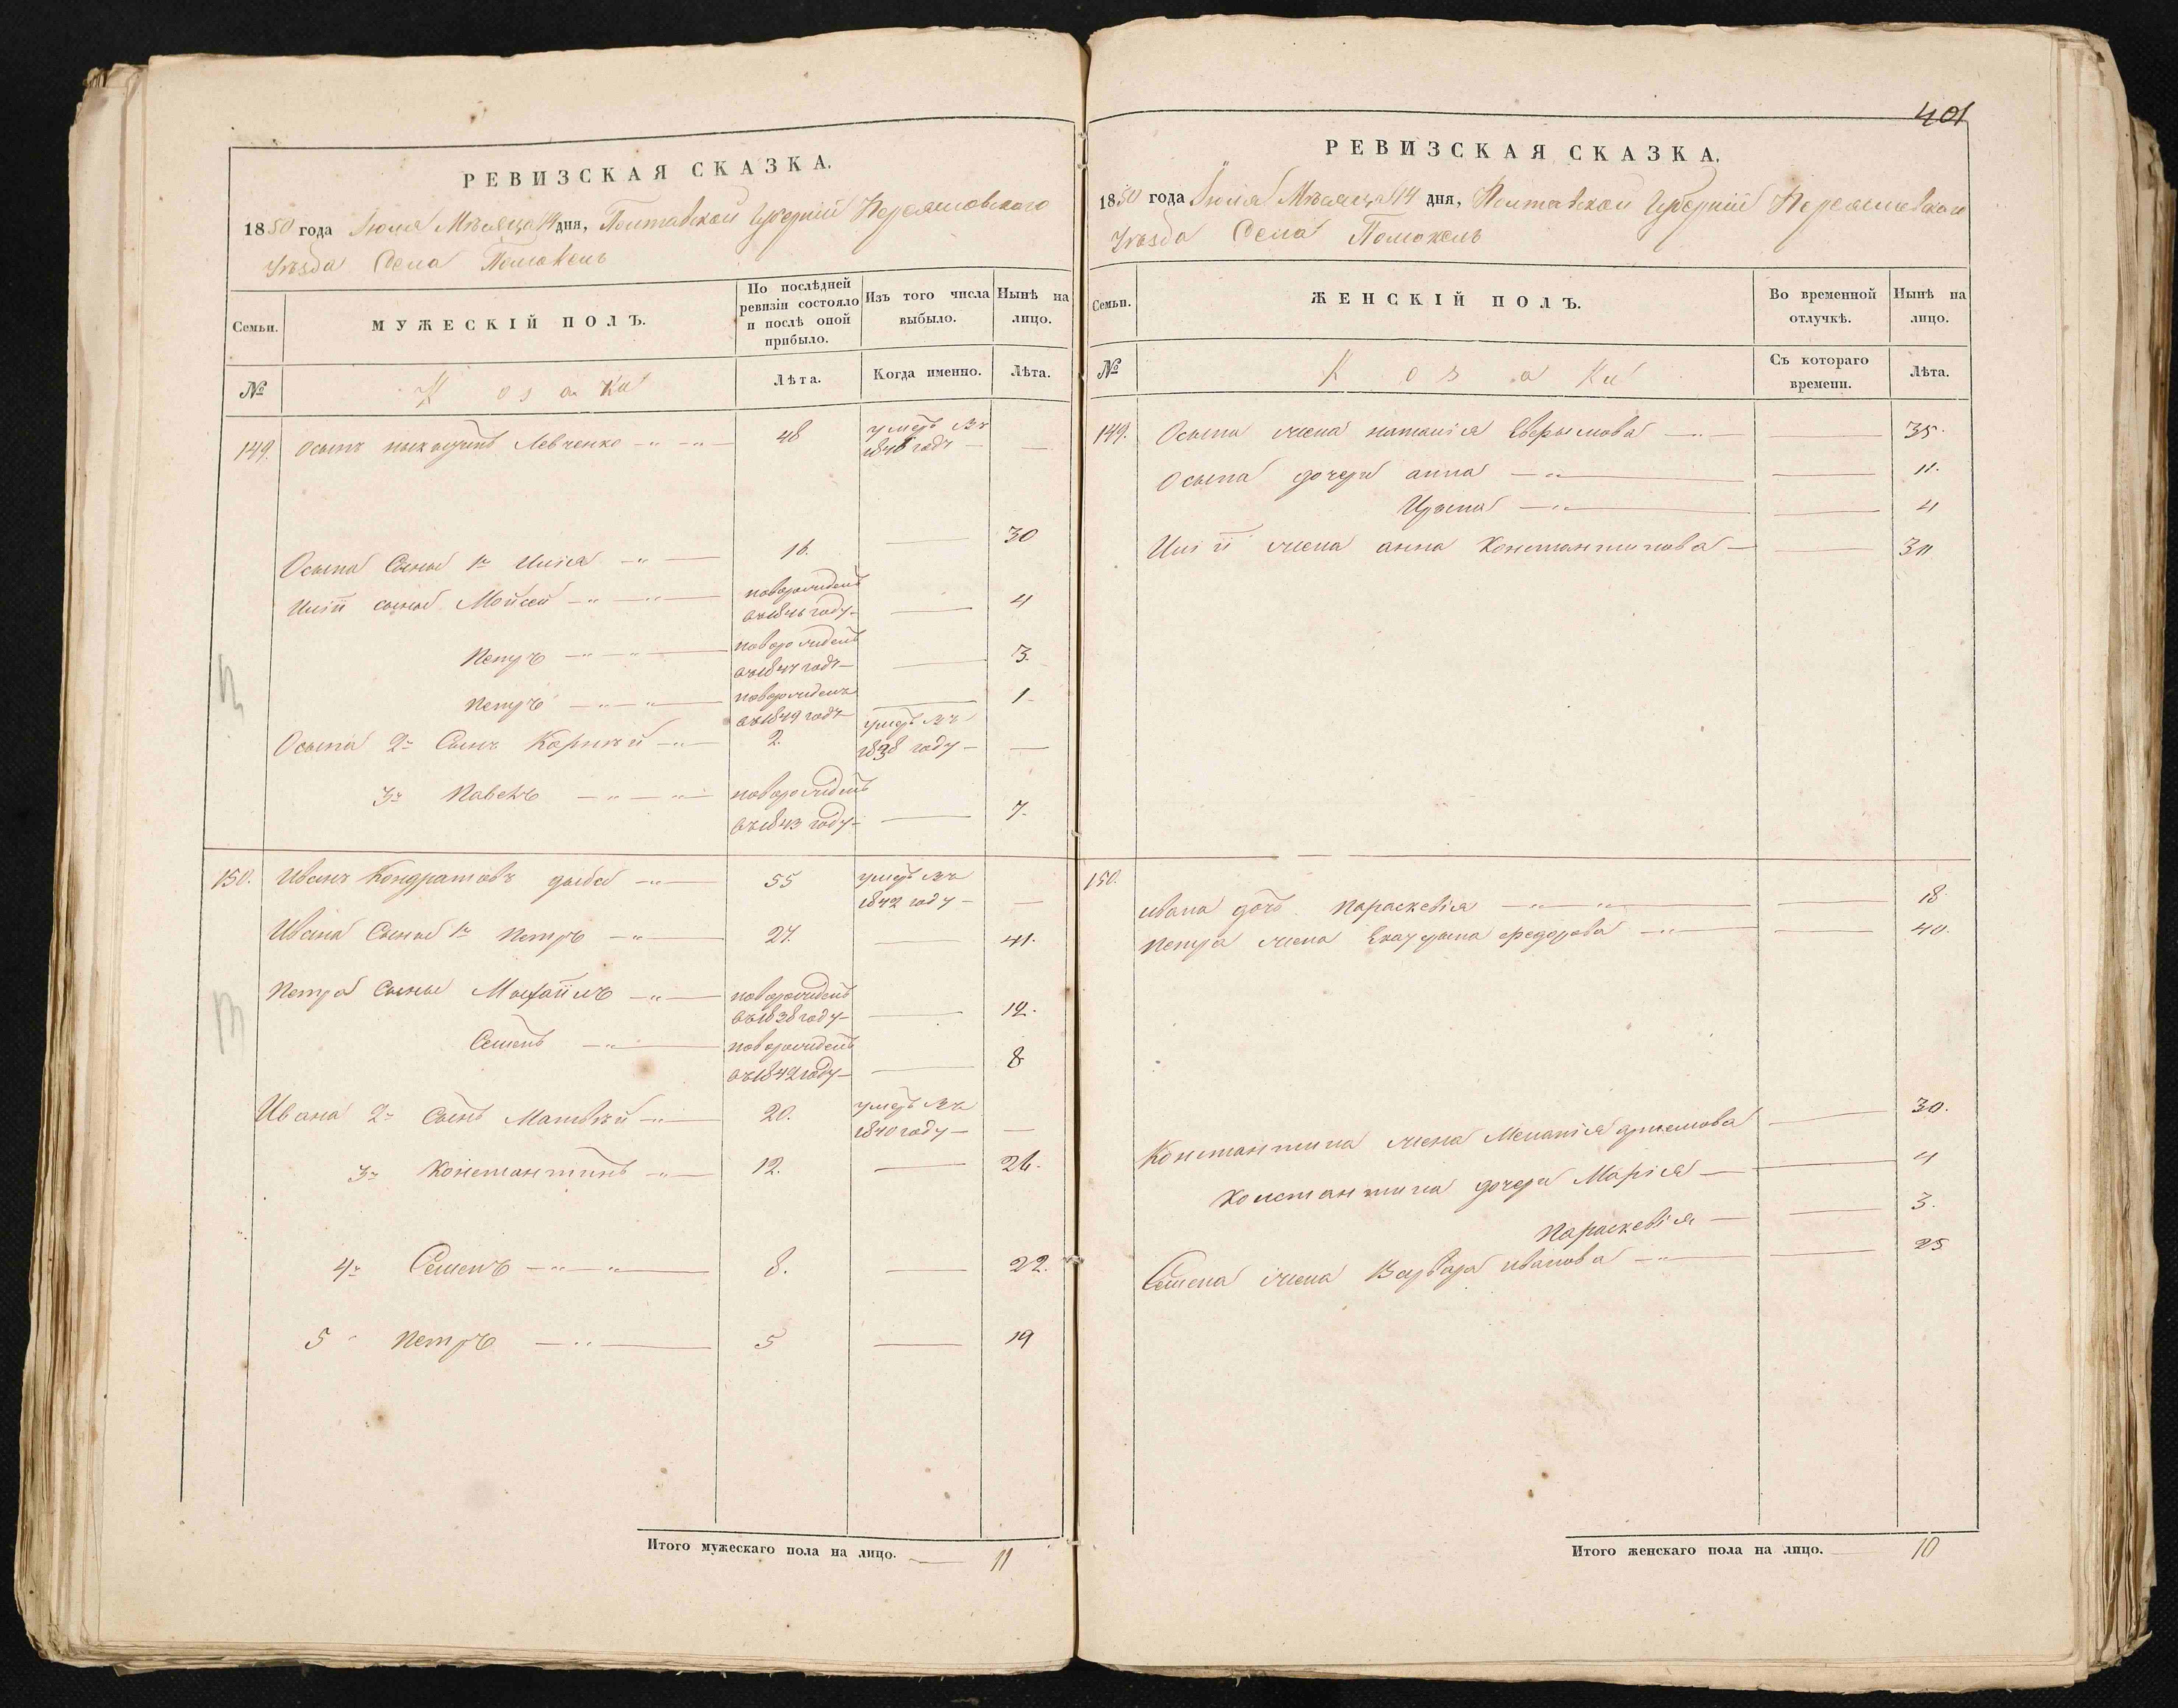 РЕВИЗСКАЯ СКАЗКА.
1850 года Іюля Мѣсяца 14 дня, Полтавской Губерніи Переясловского
Уѣзда Села Помокель
Семьи.
МУЖЕСКІЙ ПОЛЪ.
По послѣдней ревизіи состояло и послѣ оной прибыло.
Изъ того числа выбыло.
Нынѣ на лицо.
№
Козаки
Лѣта.
Когда именно.
Лѣта.
149. Осыпъ Левченко 48 умеръ въ 1848 годѣ —
Осыпа Сыны 1й Илія 16. — 30
Иліи сыны Мойсей новорожденъ въ 1846 году — 4
Петръ новорожденъ въ 1847 годѣ — 3.
Петръ новорожденъ въ 1849 годѣ — 1
Осыпа 2й Сынъ Корнѣй 2. умеръ въ 1838 году —
3й Павелъ новорожденъ въ 1843 году — 7.
150. Иванъ Кондратовъ дыба 55 умеръ въ 1842 году —
Ивана Сыны 1й Петръ 27. — 41.
Петра Сыны новорожденъ въ 1838 году — 12.
Семенъ новорожденъ въ 1842 году — 8
Ивана 2й Сынъ Матвѣй 20. умеръ въ 1840 году —
3й Константинъ 12. — 26.
4й Семенъ 8. — 22.
5 Петръ 5 — 19
Итого мужескаго пола на лицо. 11
401
РЕВИЗСКАЯ СКАЗКА.
1850 года Іюля Мѣсяца 14 дня, Полтавской Губерніи Переясловского
Уѣзда Села Помокель
Семьи.
ЖЕНСКІЙ ПОЛЪ.
Во временной отлучкѣ.
Нынѣ на лицо.
№
Козаки
Съ котораго времени.
Лѣта.
149. Осыпа жена наталія — 35.
Осыпа дочери анна — 11.
— 4
Иліи жена анна Константинова — 30
150.
ивана дочь Параскевія — 18
Петра жена Екатерина федорова — 40.
Константина жена Меланія — 30.
Константина дочери Марія — 4
Параскевія — 3.
Семена жена Варвара иванова — 25
Итого женскаго пола на лицо. 10